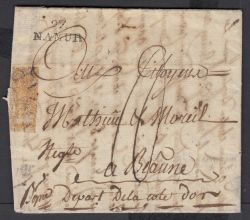 97
NAMUR
Aux Citoyens
Mathieu & Moreil
Negts
a Beaune
Dépar.t De la cote d'or